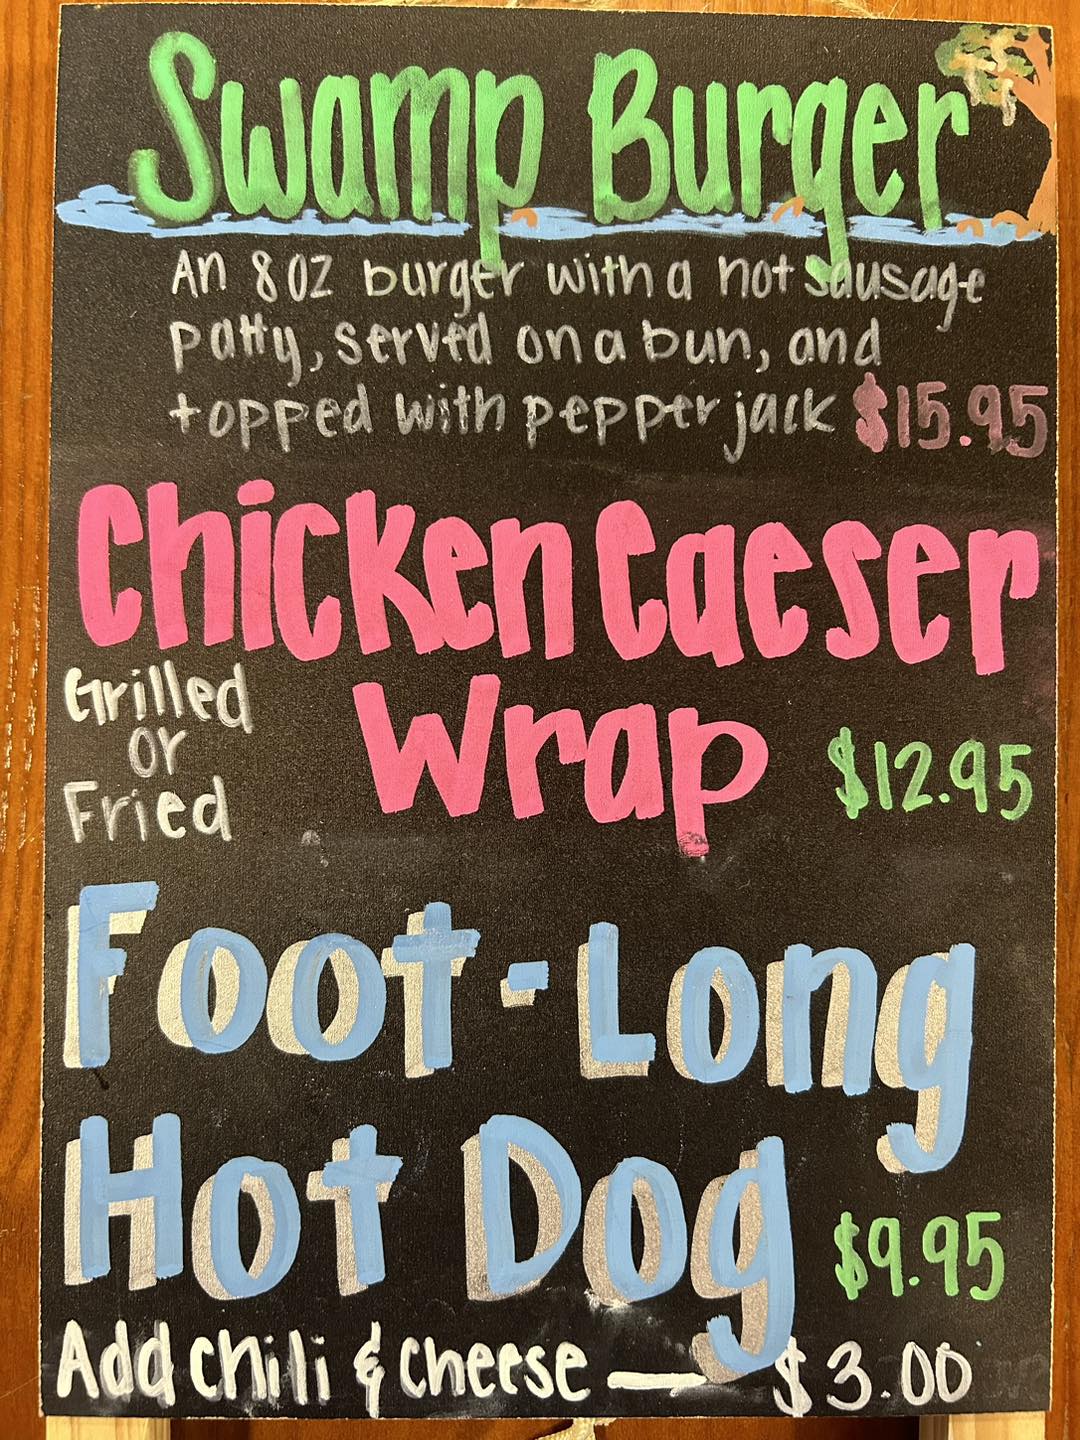 Swamp Burger
An 8 oz burger with a hot sausage
patty, served on a bun, and
topped with pepper jack $15.95
Chicken Caeser
Grilled
or
Fried
Wrap $12.95
Foot-Long
Hot Dog $9.95
Add chili & cheese — $3.00